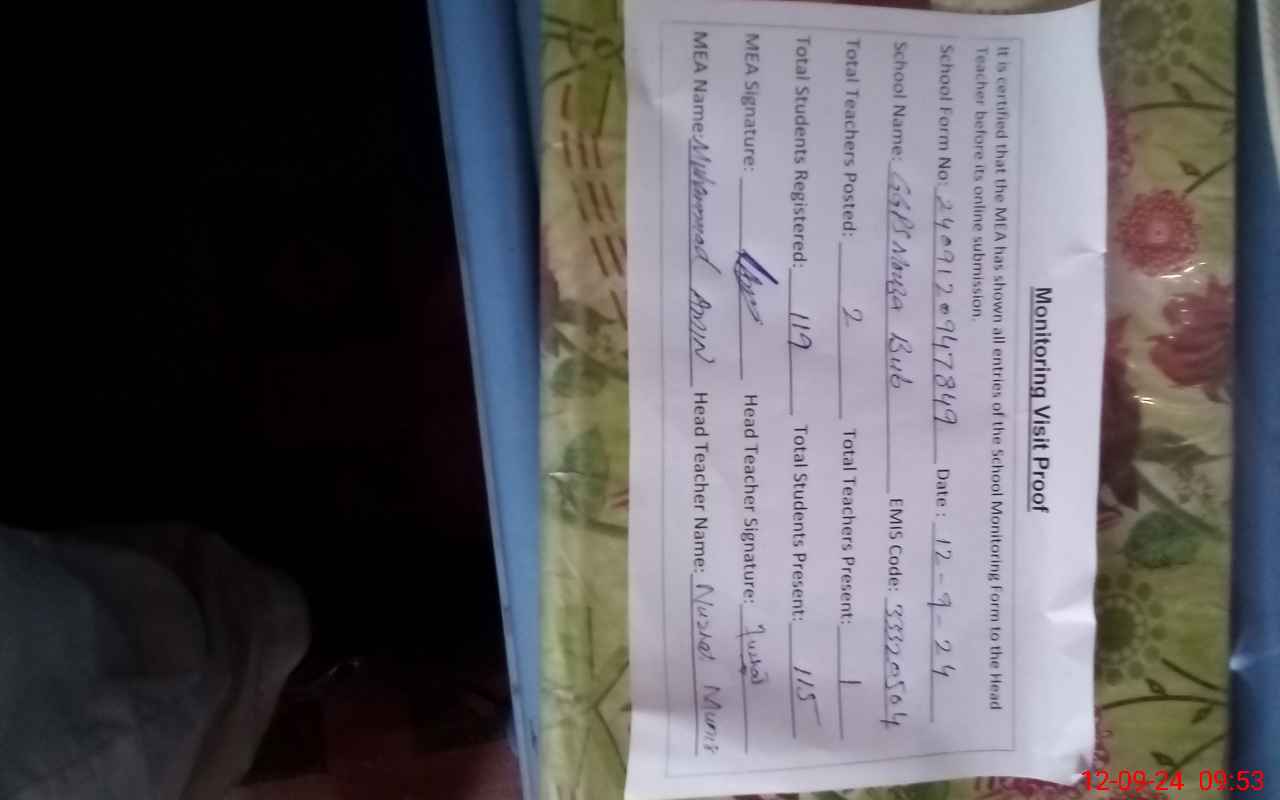 Monitoring Visit Proof
It is certified that the MEA has shown all entries of the School Monitoring Form to the Head
Teacher before its online submission.
School Form No: 2409120947849 Date : 12-9-24
School Name: GGPS Mouza Bub EMIS Code: 33320504
Total Teachers Posted: 2 Total Teachers Present: 1
Total Students Registered: 119 Total Students Present: 115
MEA Signature: Head Teacher Signature: Nuzhat
MEA Name: Muhammad Amin Head Teacher Name: Nuzhat Munir
12-09-24 09:53